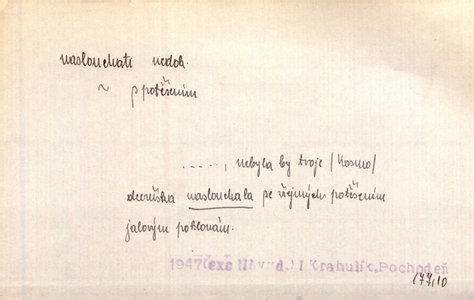 naslouchati nedok.
~ s potěšením
....., nebyla by tvoje /Kosmo/
dceruška naslouchala se zřejmým potěšením
jalovým poklonám.
1947 exc. Krahulík, Pochodeň
177,10